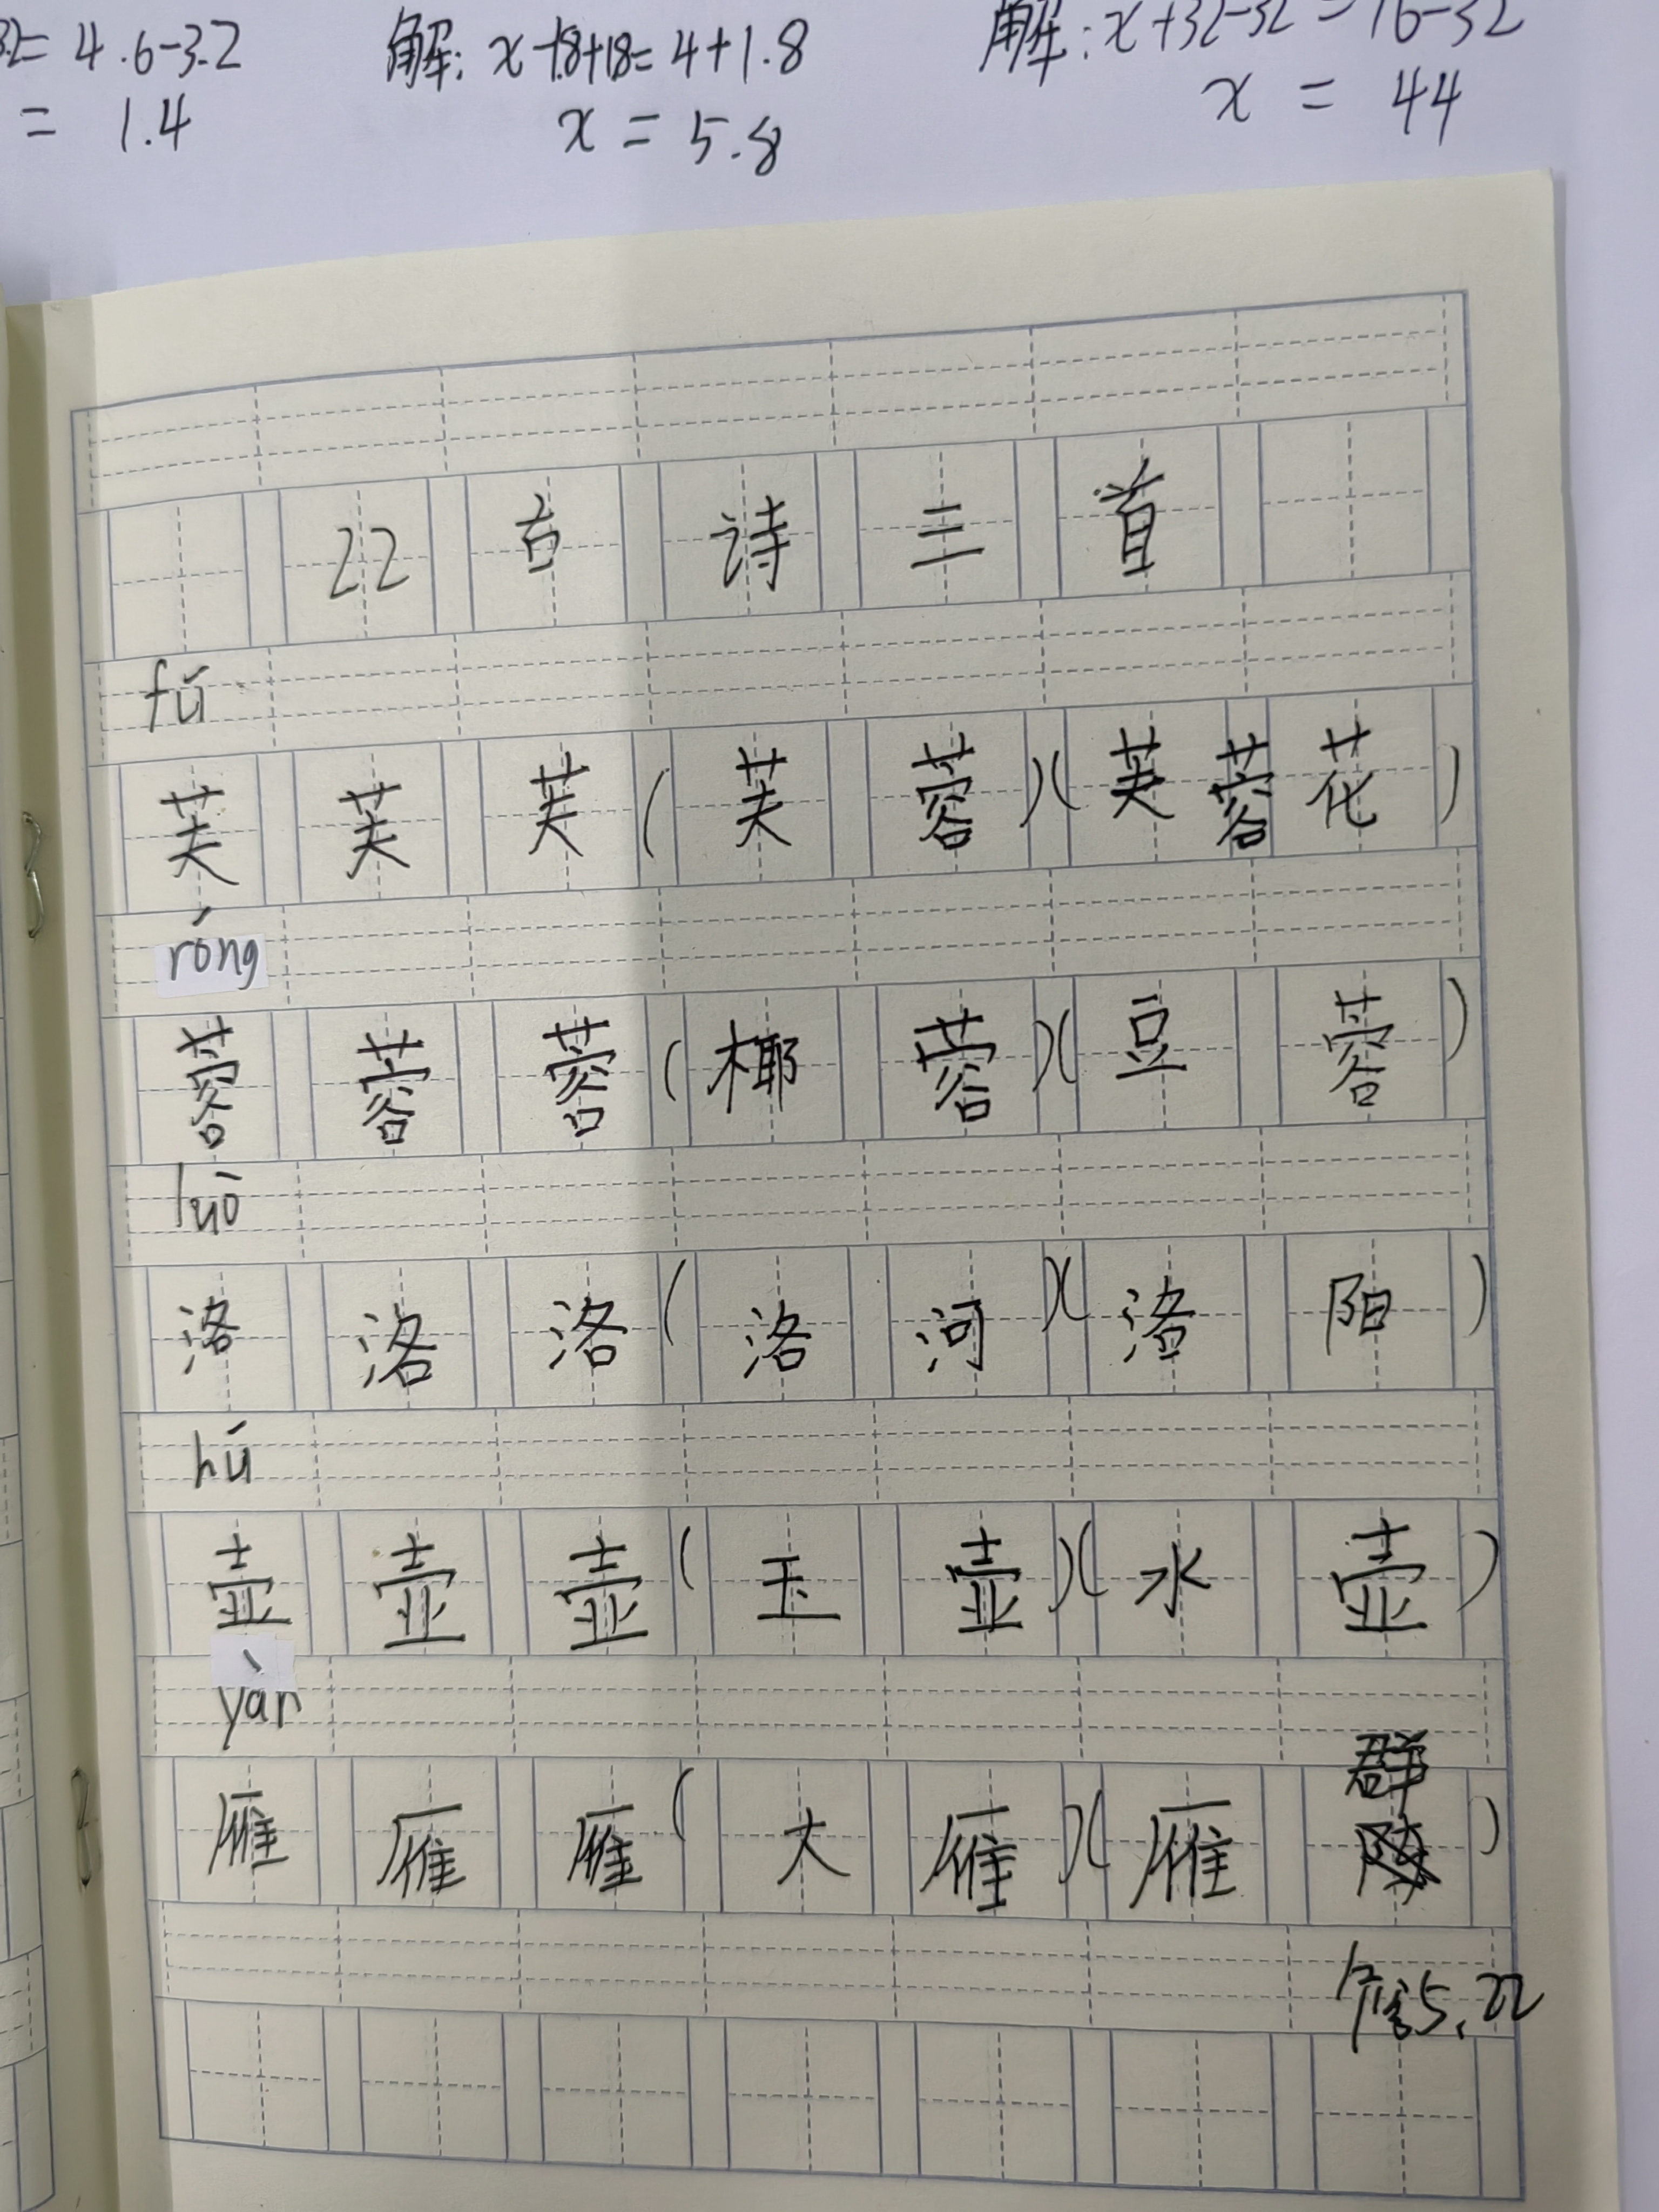 = 4.6-3.2 解: x-1.8+1.8=4+1.8 解: x+32-32=76-32
= 1.4 x = 5.8 x = 44
22 古诗三首
fú
芙 芙 芙 (芙蓉)(芙蓉花)
róng
蓉 蓉 蓉 (椰蓉)(豆蓉)
luò
洛 洛 洛 (洛河)(洛阳)
hú
壶 壶 壶 (玉壶)(水壶)
yàn
雁 雁 雁 (大雁)(雁群)
5.22